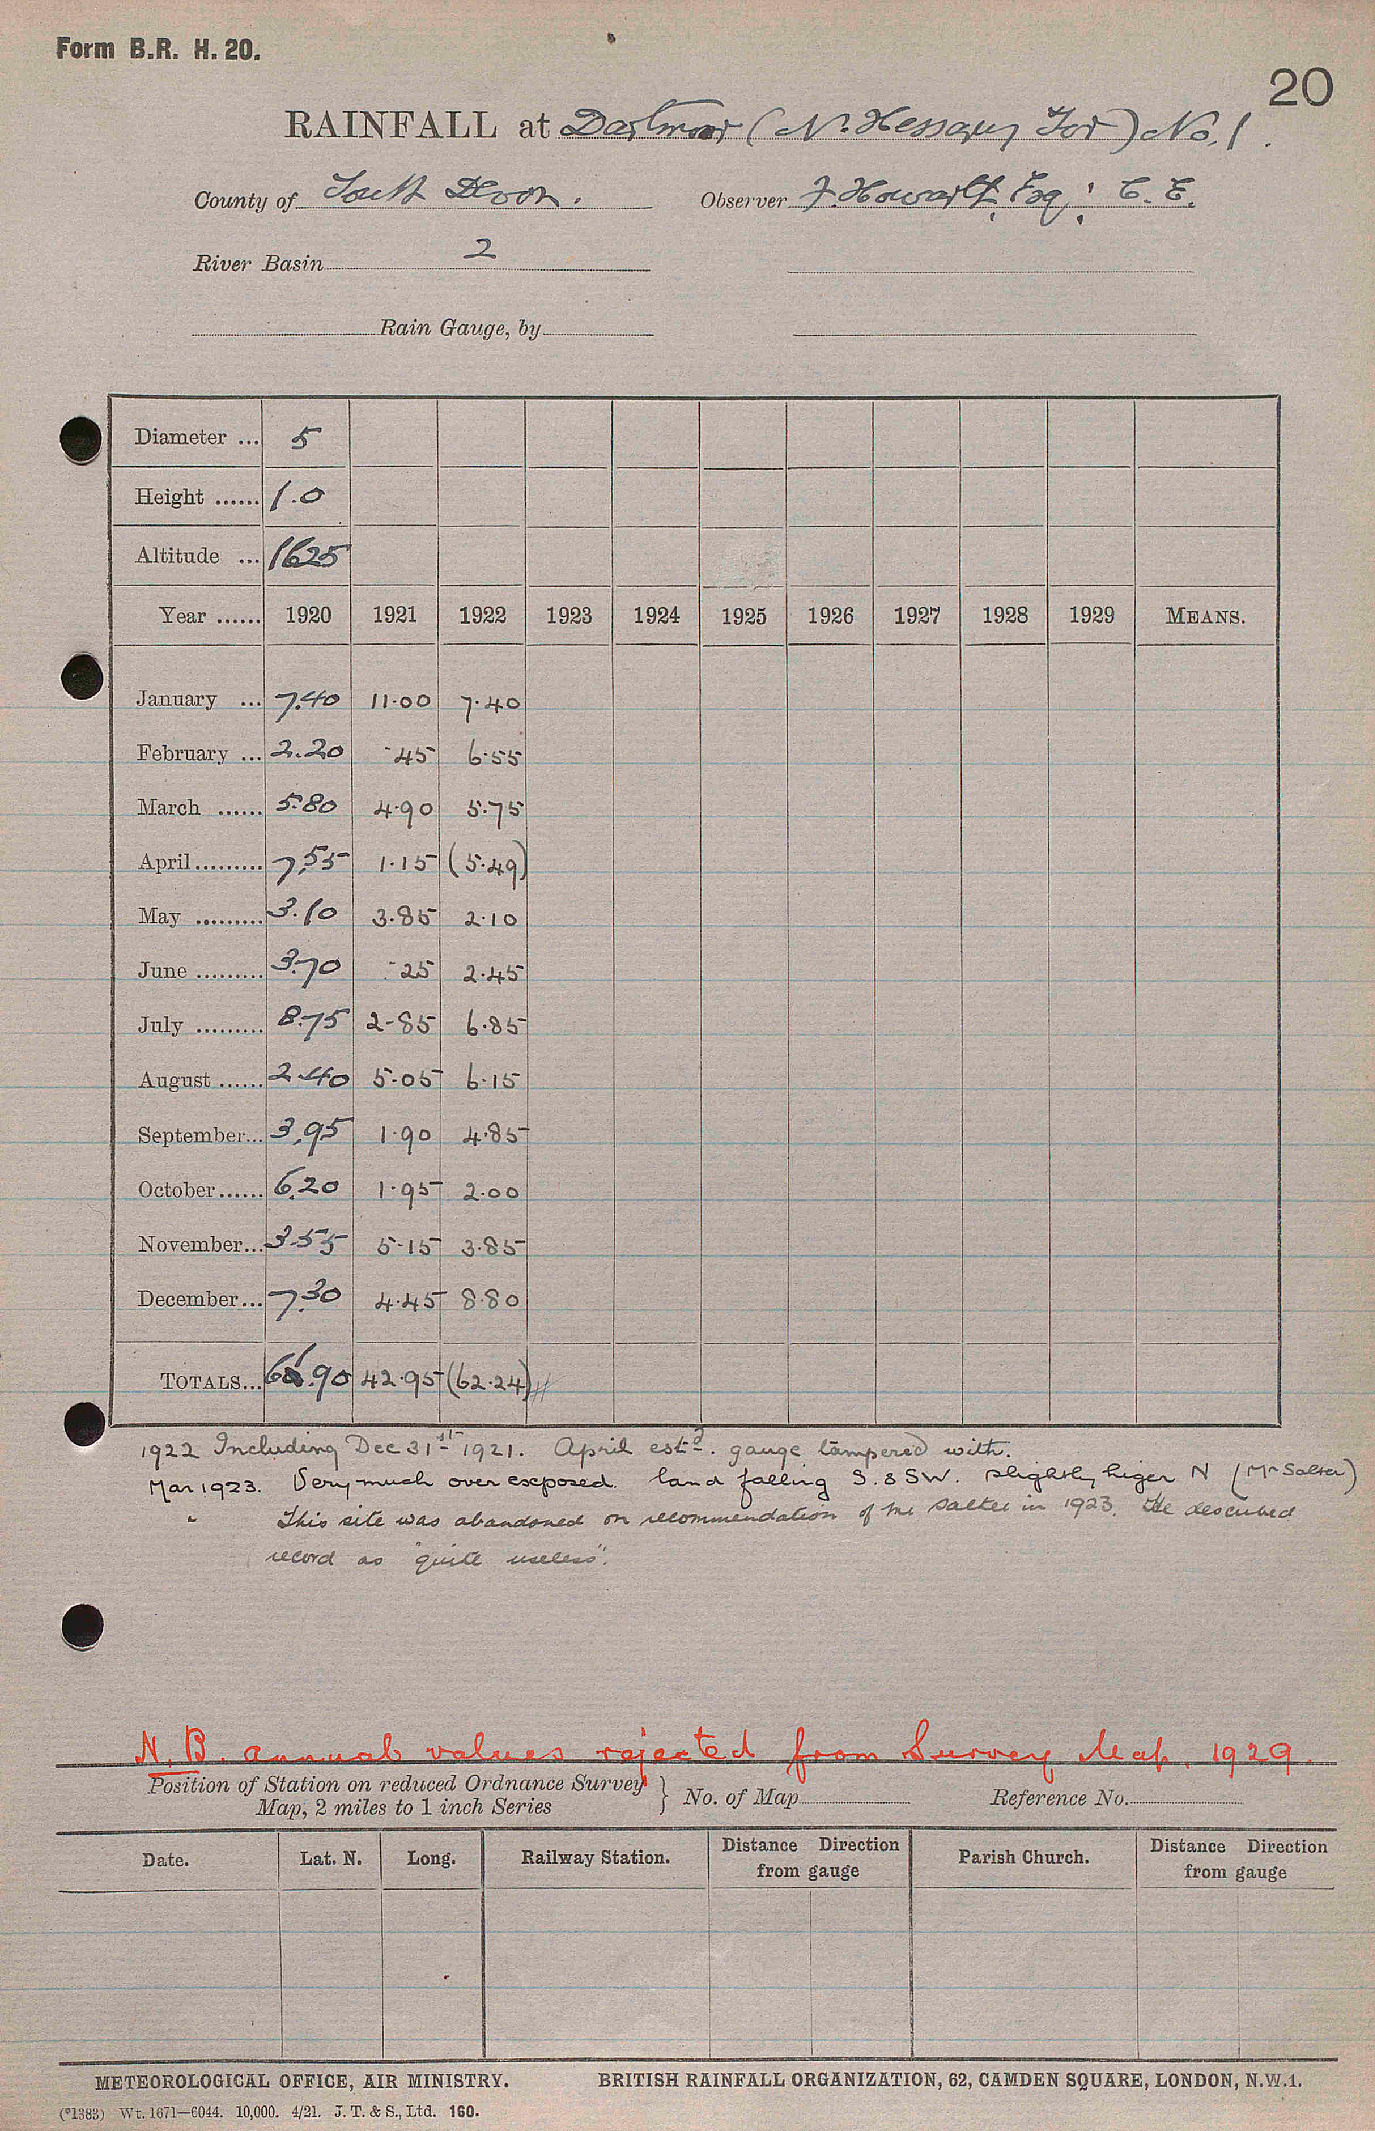 Form B.R. H. 20.
20
RAINFALL at Dartmoor (N. Hessary Tor) No. 1.
County of South Devon. Observer F. Howarth, Esq; C. E.
River Basin 2
Rain Gauge, by
Diameter ... 5
Height ...... 1.0
Altitude ... 1625
Year ...... 1920 1921 1922 1923 1924 1925 1926 1927 1928 1929 MEANS.
January ... 7.40 11.00 7.40
February ... 2.20 .45 6.55
March ...... 5.80 4.90 5.75
April ......... 7.55 1.15 (5.49)
May ......... 3.10 3.85 2.10
June ......... 3.70 .25 2.45
July ......... 8.75 2.85 6.85
August ...... 2.40 5.05 6.15
September... 3.95 1.90 4.85
October...... 6.20 1.95 2.00
November... 3.55 5.15 3.85
December... 7.30 4.45 8.80
TOTALS... 61.90 42.95 (62.24)
1922 Including Dec 31st 1921. April estd. gauge tampered with.
Mar 1923. Very much over exposed. land falling S. & SW. slightly higer N (Mr Salter)
" This site was abandoned on recommendation of Mr Salter in 1923. He described
record as "quite useless".
N.B. annual values rejected from Survey Map. 1929.
Position of Station on reduced Ordnance Survey
Map, 2 miles to 1 inch Series } No. of Map Reference No.
Date. Lat. N. Long. Railway Station. Distance Direction from gauge Parish Church. Distance Direction from gauge
METEOROLOGICAL OFFICE, AIR MINISTRY. BRITISH RAINFALL ORGANIZATION, 62, CAMDEN SQUARE, LONDON, N.W.1.
(*1383) Wt. 1671—6044. 10,000. 4/21. J. T. & S., Ltd. 160.